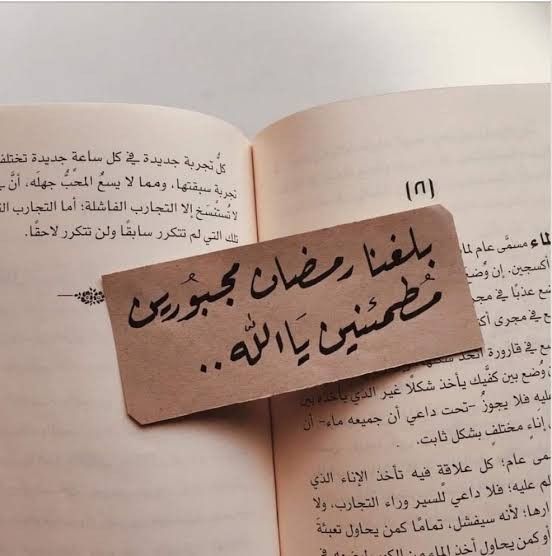 بلغنا رمضان مجبُورين
مُطمئنين يَا الله ..
(٨)
الماء مسمَّى عام لما
أكسجين. إن وُضع
ضع عذبًا في
في مجرى
في قارورة اتخذ
وُضع بين كفَّيك يأخذ شكلًا غير الذي يأخذه بين
عليه فلا يجوزُ -تحت داعي أن جميعه ماء- أن
إناءٍ مختلفٍ بشكل ثابت.
عام؛ كل علاقة فيه تأخذ الإناء الذي
عليه؛ فلا داعي للسير وراء التجارب، ولا
لأنه سيفشل، تمامًا كمن يحاول تعبئة
أو كمن يحاول أخذ الماء من
كلُّ تجربة جديدة في كل ساعة جديدة تختلف
تجربة سبقتها، ومما لا يسعُ المحبُّ جهلَه، أنَّ
لا تُستنسَخ إلا التجارب الفاشلة؛ أما التجارب
تلك التي لم تتكرر سابقًا ولن تتكرر لاحقًا.